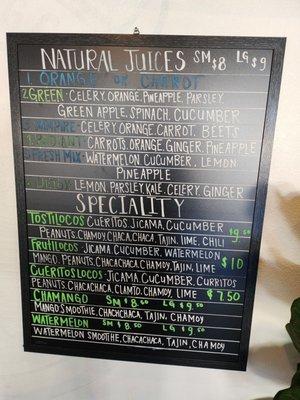 NATURAL JUICES SM $8 LG $9
1. ORANGE OR CARROT
2. GREEN - CELERY, ORANGE, PINEAPPLE, PARSLEY,
GREEN APPLE, SPINACH, CUCUMBER
3. VAMPIRE - CELERY, ORANGE, CARROT, BEETS
CARROTS, ORANGE, GINGER, PINEAPPLE
5. FRESH MIX - WATERMELON, CUCUMBER, LEMON
PINEAPPLE
LEMON, PARSLEY, KALE, CELERY, GINGER
SPECIALITY
TOSTILOCOS CUERITOS, JICAMA, CUCUMBER
PEANUTS, CHAMOY, CHACA, CHACA, TAJIN, LIME, CHILI $9.50
FRUTILOCOS - JICAMA, CUCUMBER, WATERMELON
MANGO, PEANUTS, CHACACHACA, CHAMOY, TAJIN, LIME $10
CUERITOSLOCOS - JICAMA, CUCUMBER, CURRITOS
PEANUTS, CHACACHACA, CLAMTO, CHAMOY, LIME $7.50
CHAMANGO SM $8.50 LG $9.50
MANGO SMOOTHIE, CHACHCHACA, TAJIN, CHAMOY
WATERMELON SM $8.50 LG $9.50
WATERMELON SMOOTHIE, CHACACHACA, TAJIN, CHAMOY